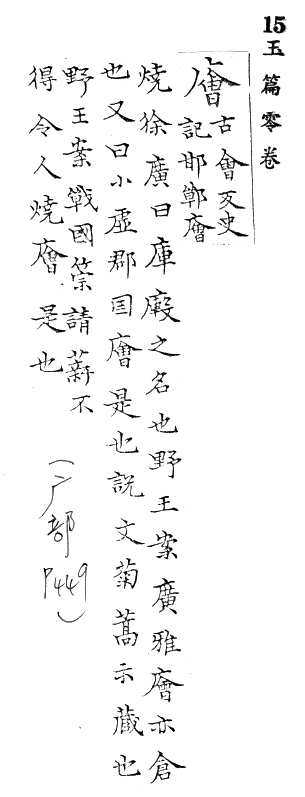 15玉篇零卷
廥
古會反史
記邯鄲廥
燒徐廣曰庫廄之名也野王案廣雅廥亦倉
也又曰小虛郡国廥是也說文菊蒿示蔵也
野王案戰國策請薪不
得令人燒廥是也
(广部 P449)